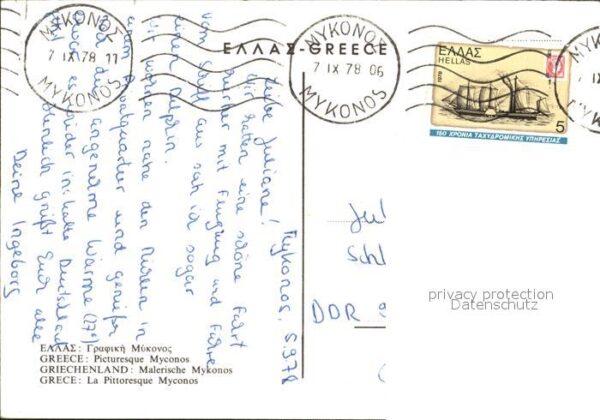 ΜΥΚΟΝΟΣ
7 IX 78 11
MYKONOS
ΕΛΛΑΣ-GREECE
ΜΥΚΟΝΟΣ
7 IX 78 06
MYKONOS
ΕΛΛΑΣ
HELLAS
1978
5
150 ΧΡΟΝΙΑ ΤΑΧΥΔΡΟΜΙΚΗΣ ΥΠΗΡΕΣΙΑΣ
Mykonos, 5.9.78
Liebe Juliane!
Wir hatten eine schöne Fahrt
hierher mit Flugzeug und Fähre
vom Schiff aus sah ich sogar
einen Delphin.
Wir wohnen nahe den Mühlen in
einem Privatquartier und genießen
angenehme Wärme (27°)
es wieder in kalte Deutschland
grüßt Euch alle
Deine Ingeborg
Jul
Schl
DDR
privacy protection
Datenschutz
ΕΛΛΑΣ: Γραφική Μύκονος
GREECE: Picturesque Myconos
GRIECHENLAND: Malerische Mykonos
GRECE: La Pittoresque Myconos